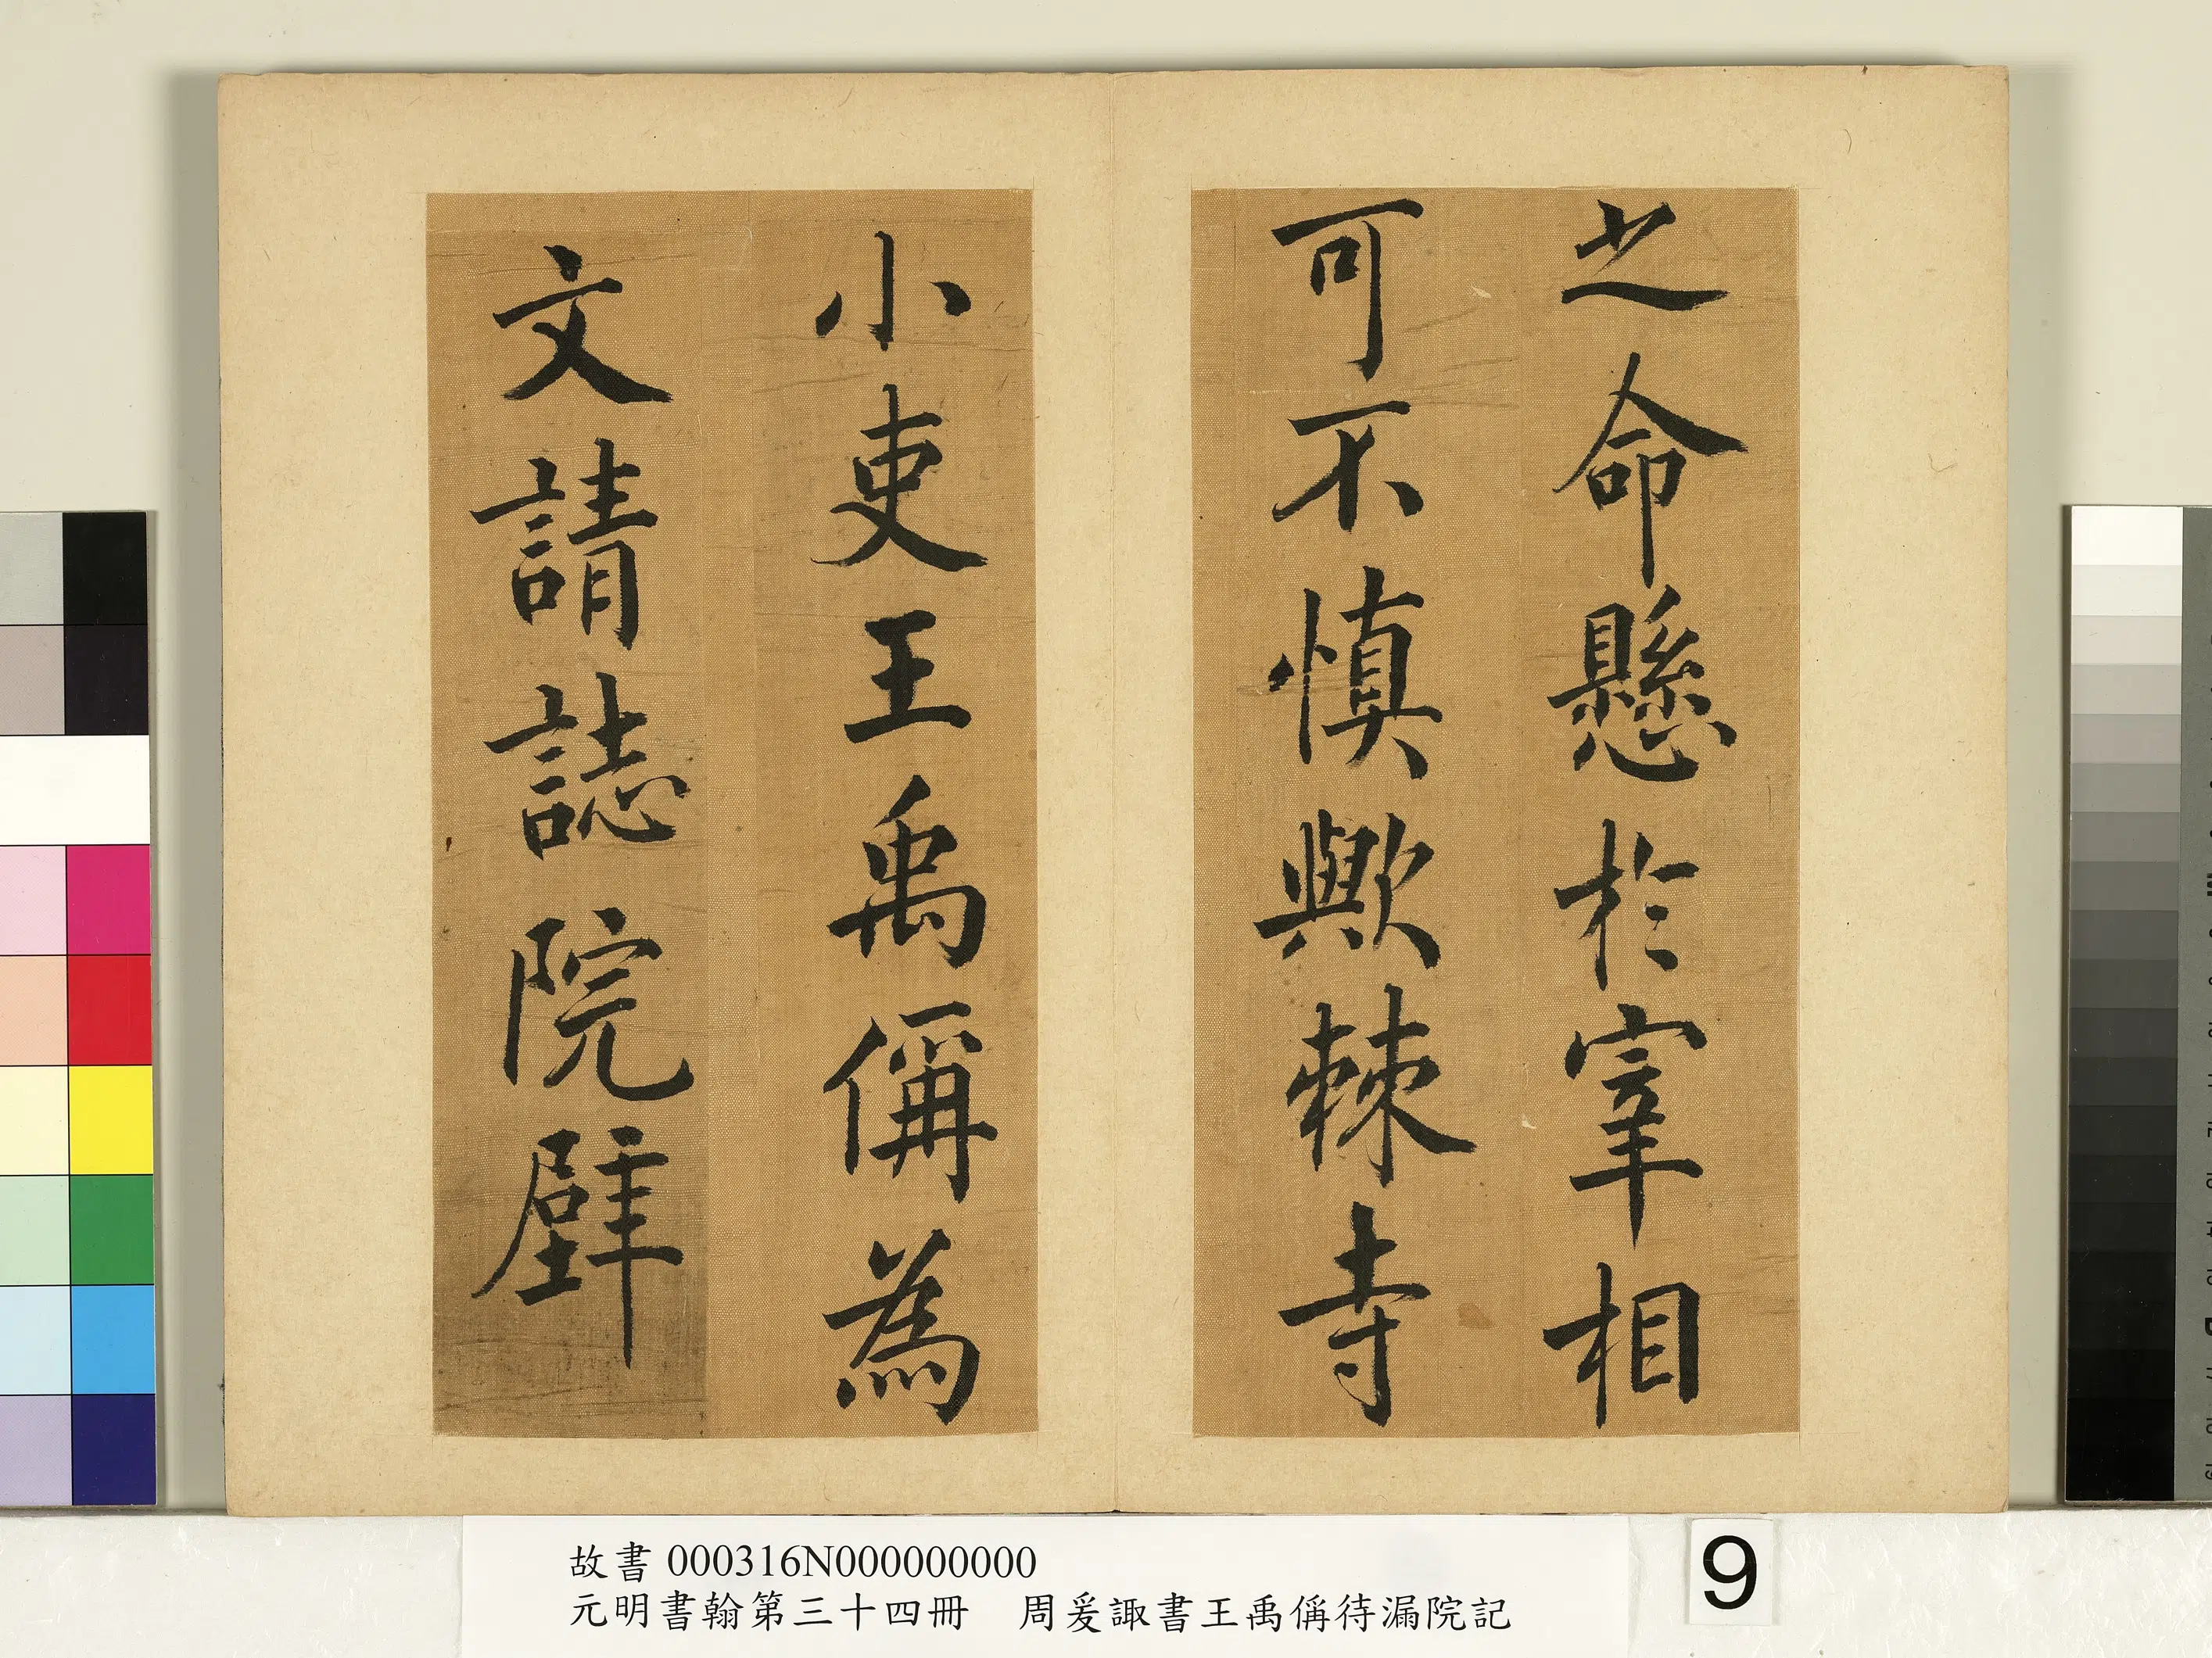 之命懸於宰相
可不慎歟棘寺
小吏王禹偁為
文請誌院壁
故書 000316N000000000
元明書翰第三十四冊　周爰諏書王禹偁待漏院記
9